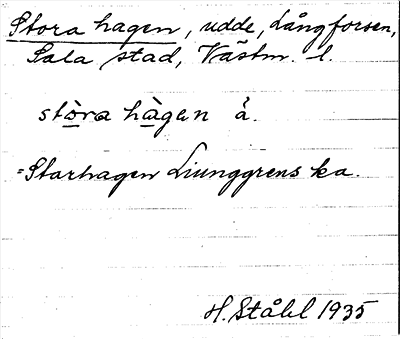 Stora hagen, udde, Långforsen,
Sala stad, Västm. l.
stòra hàgan å.
=Storhagen Liunggrens ka.
H. Ståhl 1935